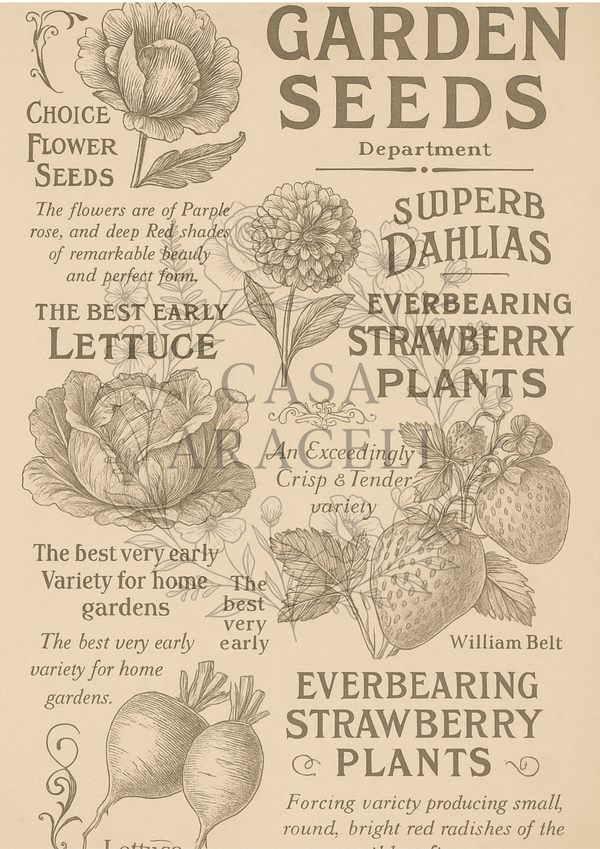 GARDEN
SEEDS
Department
CHOICE
FLOWER
SEEDS
The flowers are of Parple
rose, and deep Red shades
of remarkable beauly
and perfect form.
SUPERB
DAHLIAS
THE BEST EARLY
LETTUCE
EVERBEARING
STRAWBERRY
PLANTS
CASA
ARACELI
An Exceedingly
Crisp & Tender
variety
The best very early
Variety for home
gardens
The
best
very
early
William Belt
The best very early
variety for home
gardens.
EVERBEARING
STRAWBERRY
PLANTS
Forcing varicty producing small,
round, bright red radishes of the
Lottuce